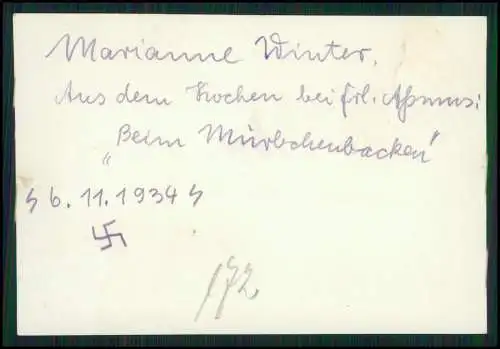 Marianne Winter.
Aus dem Kochen bei Frl. Asmus:
„Beim Mürbchenbacken"
ϟ 6. 11. 1934 ϟ
卐
172